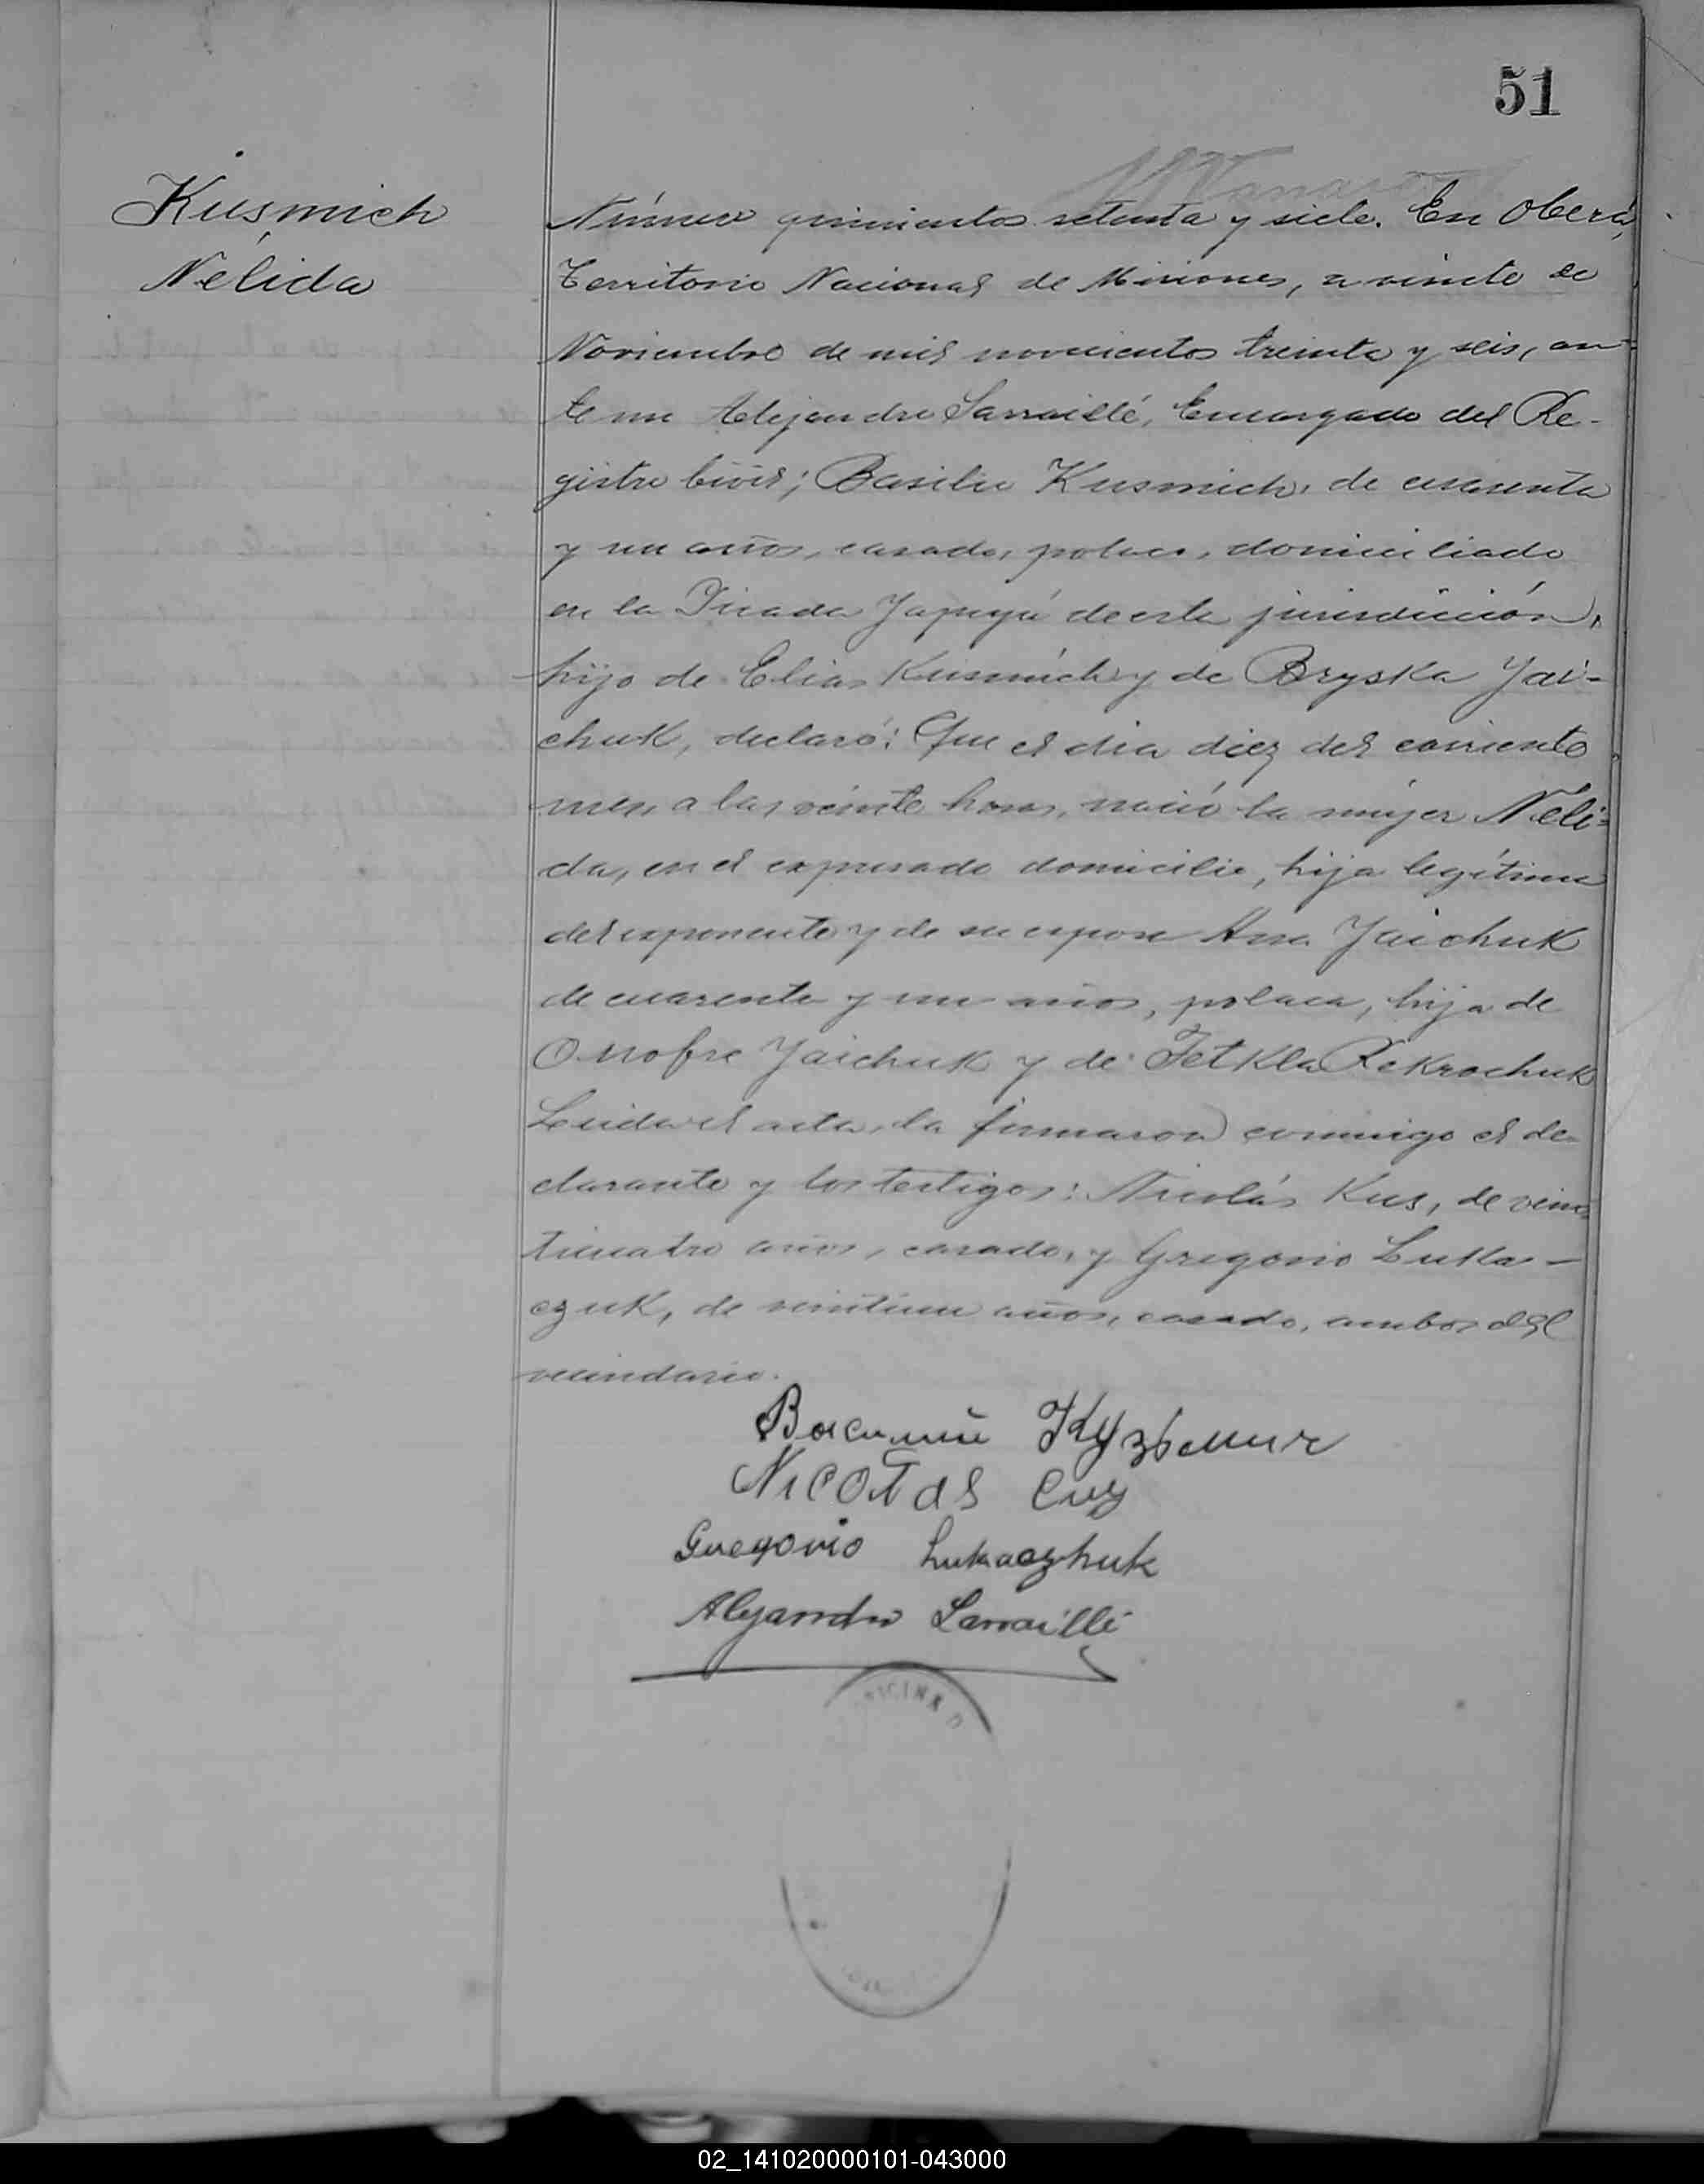 51
Kusmich
Nélida
Número quinientos setenta y siete. En Oberá,
Territorio Nacional de Misiones, a veinte de
Noviembre de mil novecientos treinta y seis, an-
te mi Alejandro Sarraillé, Encargado del Re-
gistro Civil; Basilio Kusmich, de cuarenta
y un años, casado, polaco, domiciliado
en la Picada Yapeyú de esta jurisdicción,
hijo de Elias Kusmich y de Bryska Yai-
chuk, declaró: Que el dia diez del corriente
mes, a las veinte horas, nació la mujer Néli-
da, en el expresado domicilio, hija legítima
del exponente y de su esposa Ana Yaichuk
de cuarenta y un años, polaca, hija de
Onofre Yaichuk y de Tetkla Rekrochuk
Leida el acta, la firmaron conmigo el de-
clarante y los testigos: Nicolás Kus, de vein-
ticuatro años, casado, y Gregorio Luka-
czuk, de veintiun años, casado, ambos del
vecindario.
Василий Кузьмич
Nicolas Cuz
Gregorio Lukaczhuk
Alejandro Sarraillé
02_141020000101-043000